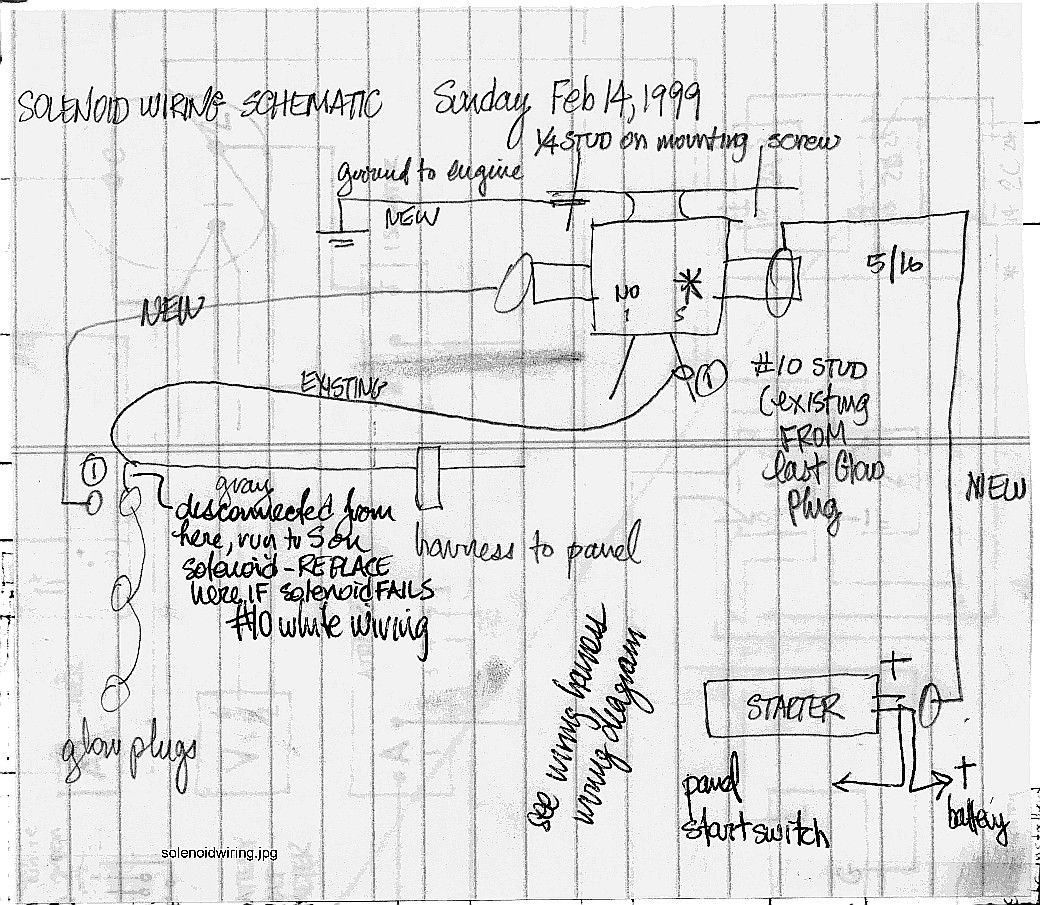 SOLENOID WIRING SCHEMATIC Sunday Feb 14, 1999
1/4 STUD on mounting screw
ground to engine
NEW
5/16
NO
*
NEW
1
S
EXISTING
1
#10 STUD
(existing
FROM
last Glow
Plug
1
gray
disconnected from
here, run to S on
solenoid - REPLACE
here IF solenoid FAILS
#10 white wiring
harness to panel
NEW
see wiring harness
wiring diagram
+
STARTER
glow plugs
panel
start switch
+
battery
solenoidwiring.jpg